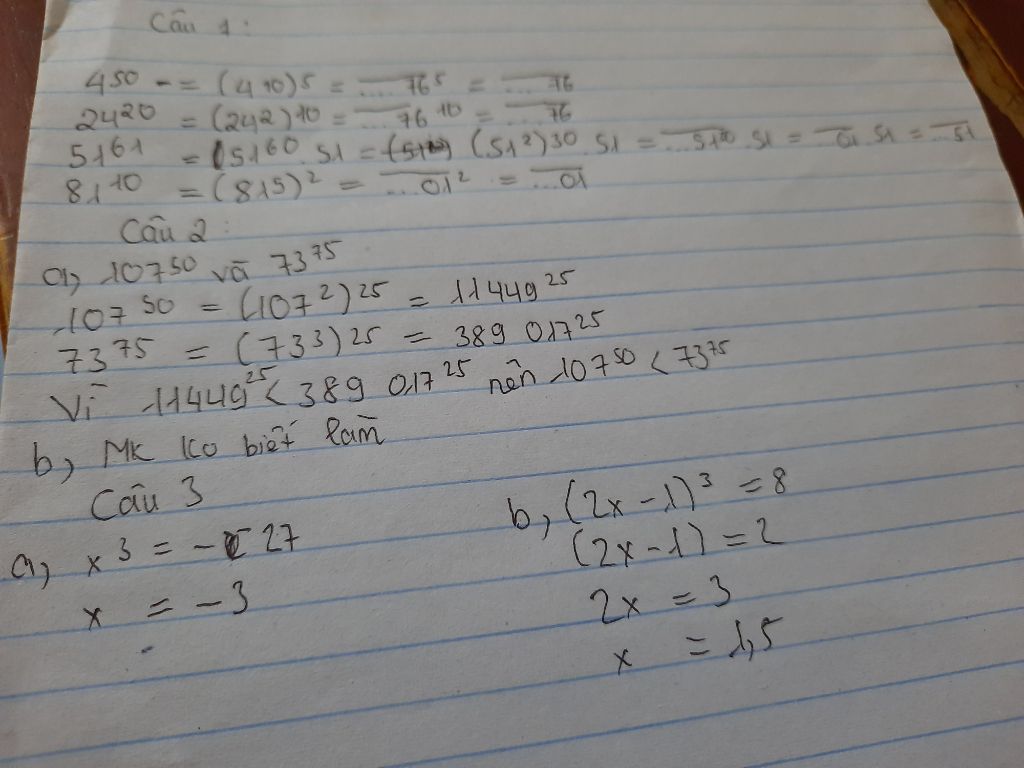 Câu 1:
4^50 = (4^10)^5 = ...76^5 = ...76
24^20 = (24^2)^10 = ...76^10 = ...76
51^61 = 51^60 . 51 = (51^2)^30 . 51 = ...51^30 . 51 = ...01 . 51 = ...51
81^10 = (81^5)^2 = ...01^2 = ...01
Câu 2:
a, 107^50 và 73^75
107^50 = (107^2)^25 = 11449^25
73^75 = (73^3)^25 = 389 017^25
Vì 11449^25 < 389 017^25 nên 107^50 < 73^75
b, Mk ko biết làm
Câu 3
a, x^3 = -27
x = -3
b, (2x-1)^3 = 8
(2x-1) = 2
2x = 3
x = 1,5